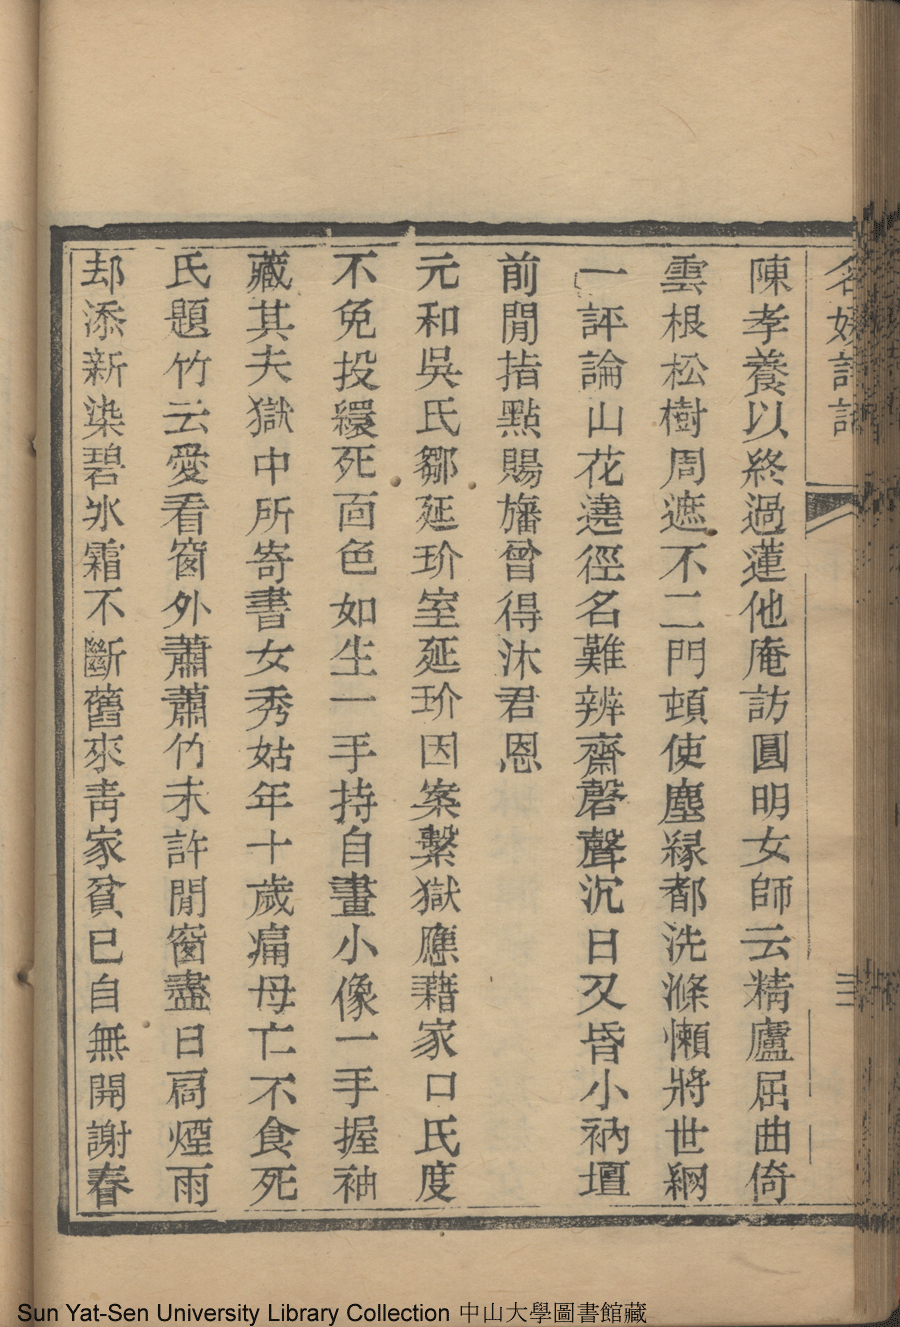 名媛詩話
三
陳孝養以終過蓮他庵訪圓明女師云精廬屈曲倚
雲根松樹周遮不二門頓使塵縁都洗滌懶將世網
一評論山花遶徑名難辨齋磬聲沉日又昏小衲壇
前閒指點賜旛曾得沐君恩
元和吳氏鄒延玠室延玠因案繫獄應藉家口氏度
不免投繯死面色如生一手持自畫小像一手握袖
藏其夫獄中所寄書女秀姑年十歲痛母亡不食死
氏題竹云愛看窗外蕭蕭竹未許閒窗盡日扃煙雨
却添新染碧氷霜不斷舊來靑家貧已自無開謝春
Sun Yat-Sen University Library Collection 中山大學圖書館藏